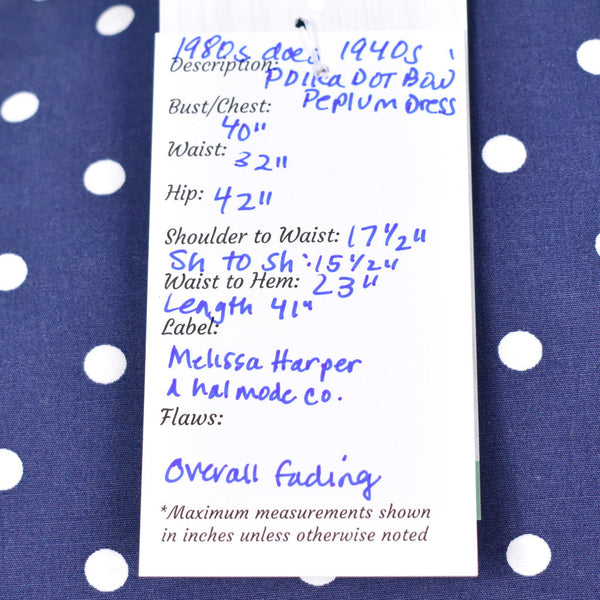 1980s does 1940s
Description:
Polka Dot Bow
Peplum Dress
Bust/Chest:
40"
Waist: 32"
Hip: 42"
Shoulder to Waist: 17 1/2"
Sh to Sh: 15 1/2"
Waist to Hem: 23"
Length 41"
Label:
Melissa Harper
A hal mode co.
Flaws:
Overall fading
*Maximum measurements shown
in inches unless otherwise noted